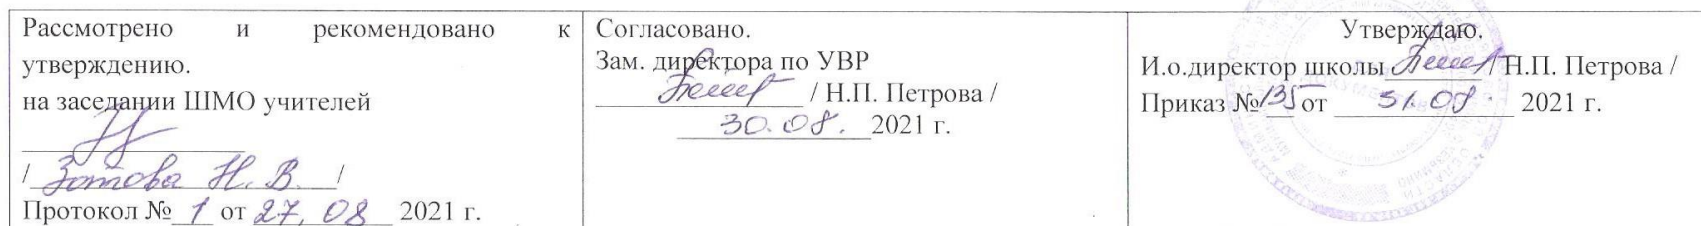 Рассмотрено и рекомендовано к
утверждению.
на заседании ШМО учителей
/ Зотова Н. В. /
Протокол № 1 от 27. 08 2021 г.
Согласовано.
Зам. директора по УВР
/ Н.П. Петрова /
30.08. 2021 г.
Утверждаю.
И.о.директор школы / Н.П. Петрова /
Приказ № 135 от 31.08. 2021 г.